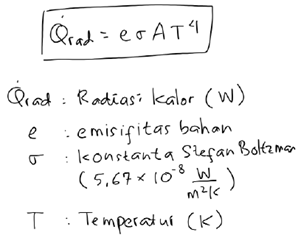 Q̇rad = e σ A T⁴
Q̇rad : Radiasi kalor (W)
e : emisifitas bahan
σ : konstanta Stefan Boltzman
(5,67 × 10⁻⁸ W/m²K)
T : Temperatur (K)